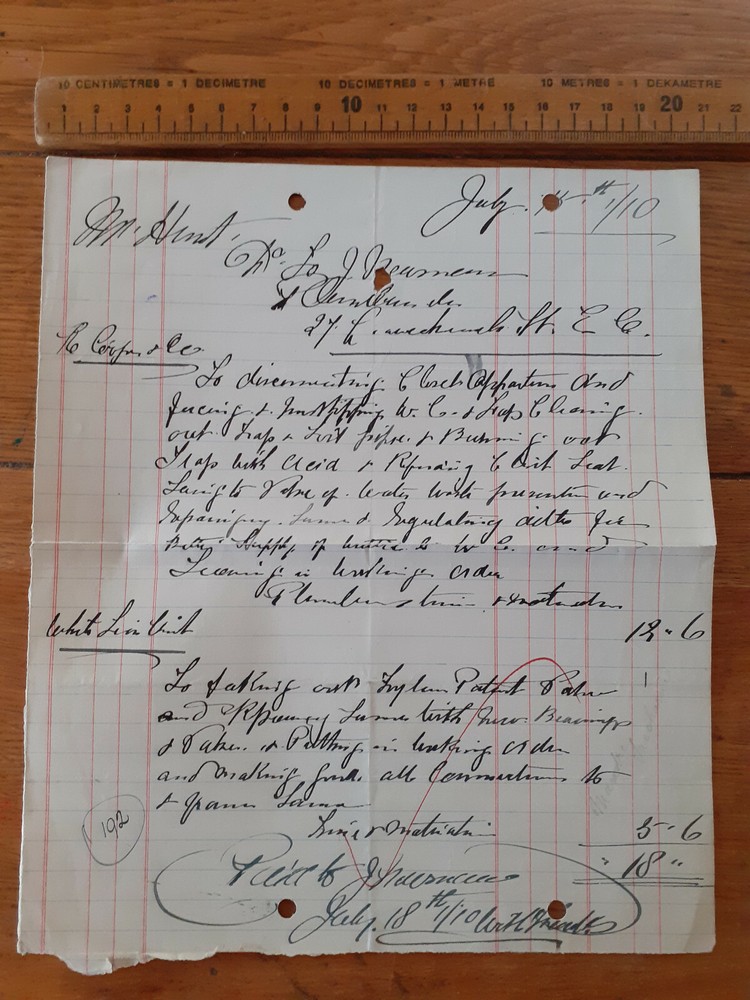 10 CENTIMETRES = 1 DECIMETRE 10 DECIMETRES = 1 METRE 10 METRES = 1 DEKAMETRE
1 2 3 4 5 6 7 8 9 10 11 12 13 14 15 16 17 18 19 20 21 22
July 15th 1/10
Mr Hunt,
Dr. To J. Newman
Plumber
27 St. E. C.
& Co
To disconnecting Closet Apparatus and
& W. C. & Trap Cleaning
out Trap & Soil pipe & Burning out
Trap with Acid & Repairing Closet Seat.
to Valve of Water Waste preventer and
Same & Regulating ditto for
Supply of water to W. C. and
Leaving in working order
Plumbers time & materials
12 " 6
White Lion
To taking out Patent Valve
and Repairing Same with New Bearings
& Valve & Putting in working order
and making good all Connections to
Same
Time & Materials
5 " 6
" 18 "
192
Paid to J Newman
July 18th 1/10